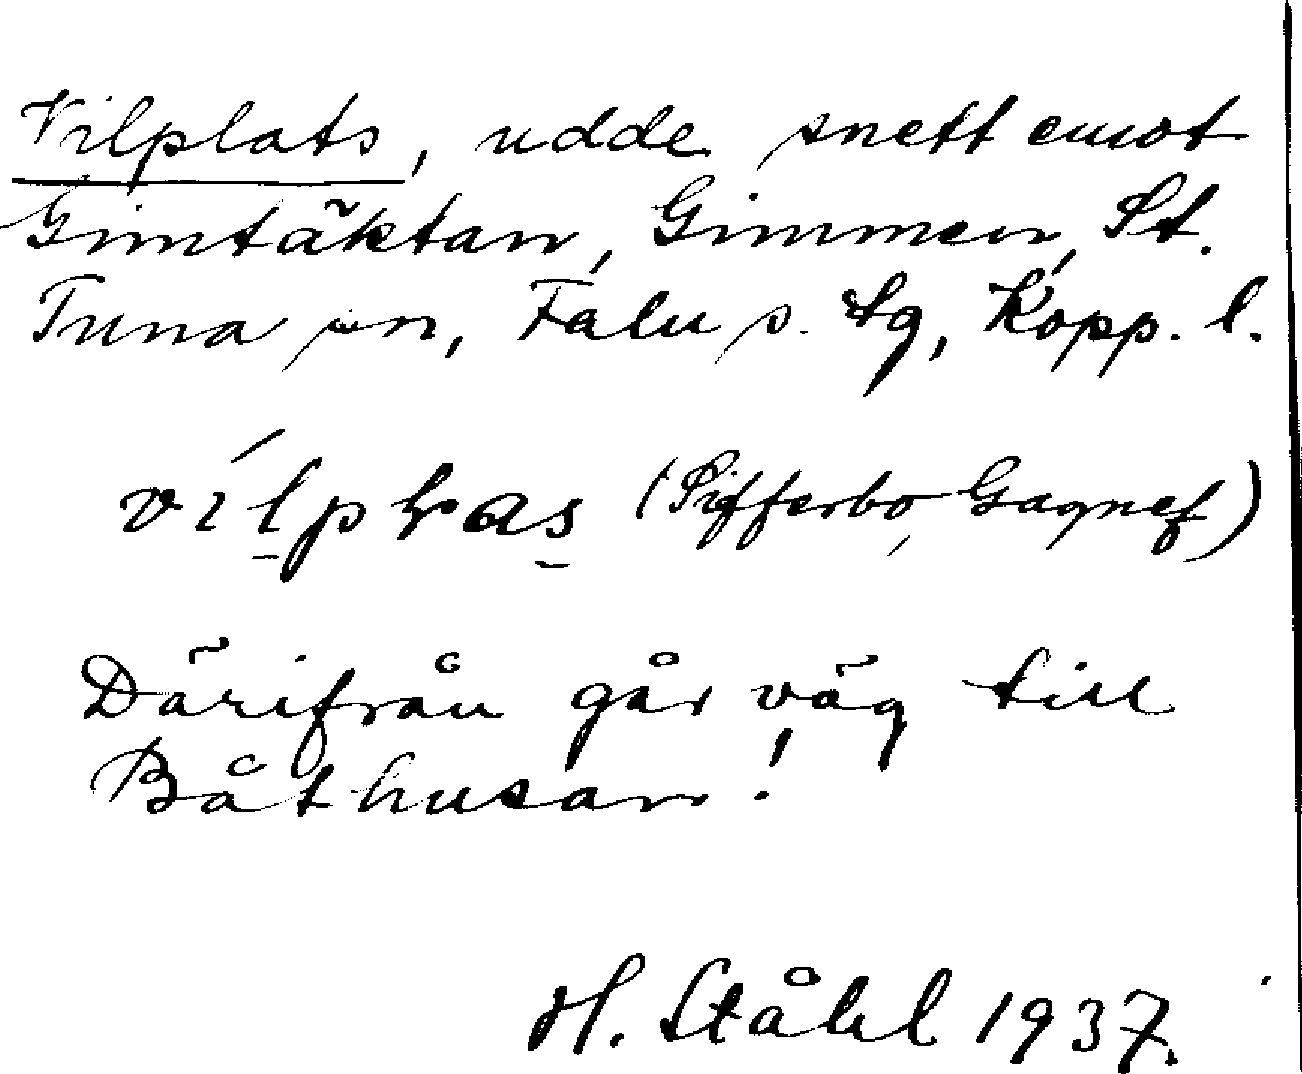 Vilplats, udde snett emot
Gimtäktan, Gimmen, St.
Tuna sn, Falu s. tg, Kopp. l.
(Sifferbo, Gagnef)
Därifrån går väg till
Båthusan!
H. Ståhl 1937.